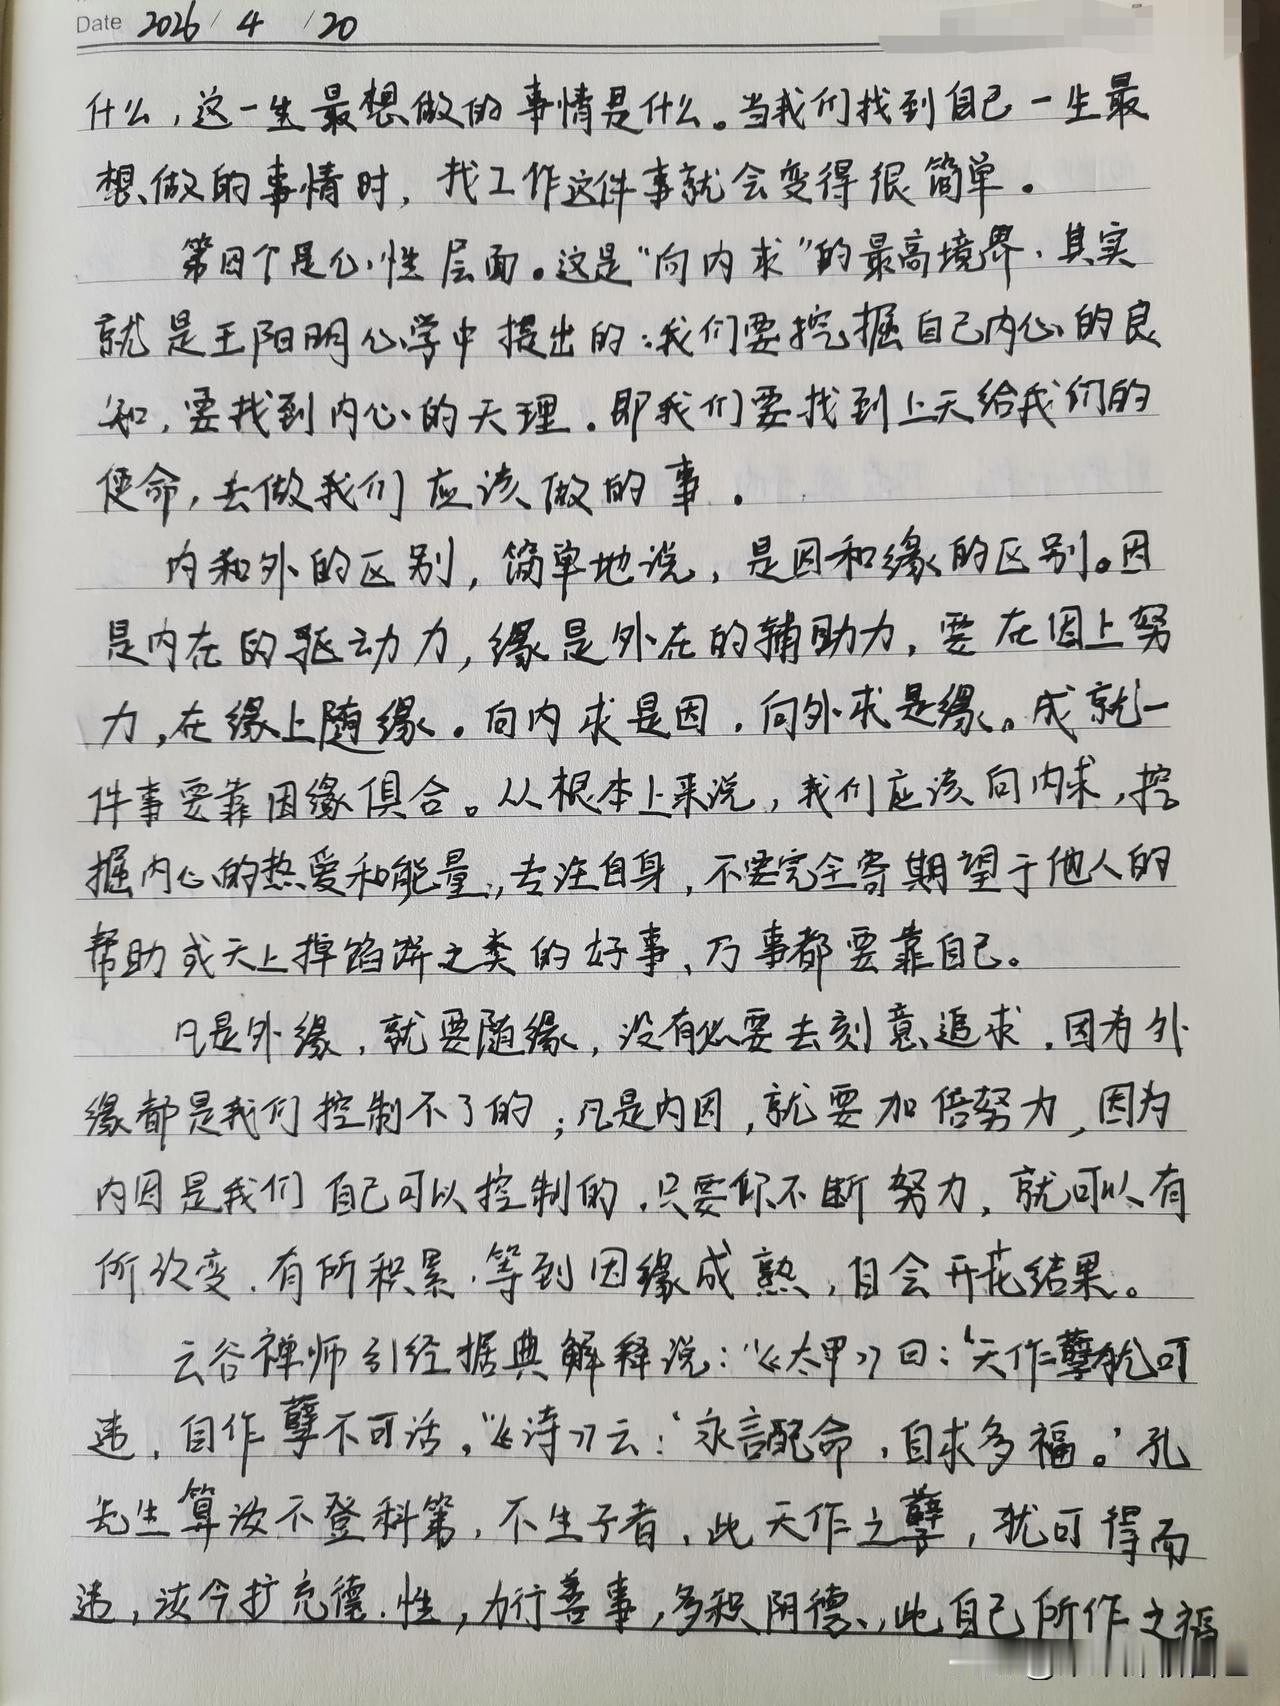 Date 2026 / 4 / 20
什么，这一生最想做的事情是什么。当我们找到自己一生最
想做的事情时，找工作这件事就会变得很简单。
第四个是心性层面。这是“向内求”的最高境界，其实
就是王阳明心学中提出的：我们要挖掘自己内心的良
知，要找到内心的天理。即我们要找到上天给我们的
使命，去做我们应该做的事。
内和外的区别，简单地说，是因和缘的区别。因
是内在的驱动力，缘是外在的辅助力，要在因上努
力，在缘上随缘。向内求是因，向外求是缘。成就一
件事要靠因缘俱合。从根本上来说，我们应该向内求，挖
掘内心的热爱和能量，专注自身，不要完全寄期望于他人的
帮助或天上掉馅饼之类的好事、万事都要靠自己。
凡是外缘，就要随缘，没有必要去刻意追求，因为外
缘都是我们控制不了的；凡是内因，就要加倍努力，因为
内因是我们自己可以控制的，只要你不断努力，就可以有
所改变，有所积累，等到因缘成熟，自会开花结果。
云谷禅师引经据典解释说：“《太甲》曰：‘天作孽犹可
违，自作孽不可活。’《诗》云：‘永言配命，自求多福。’孔
先生算汝不登科第，不生子者，此天作之孽，犹可得而
违，汝今扩充德性，力行善事，多积阴德，此自己所作之福